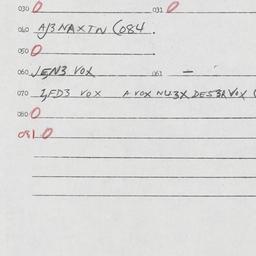 030 0 031 0
040 A/3 NAXTN (084.
050 0
060 JEN3 VOX 061 -
070 IFD3 VOX A VOX NU3X DES3A VOX (
080 0
081 0